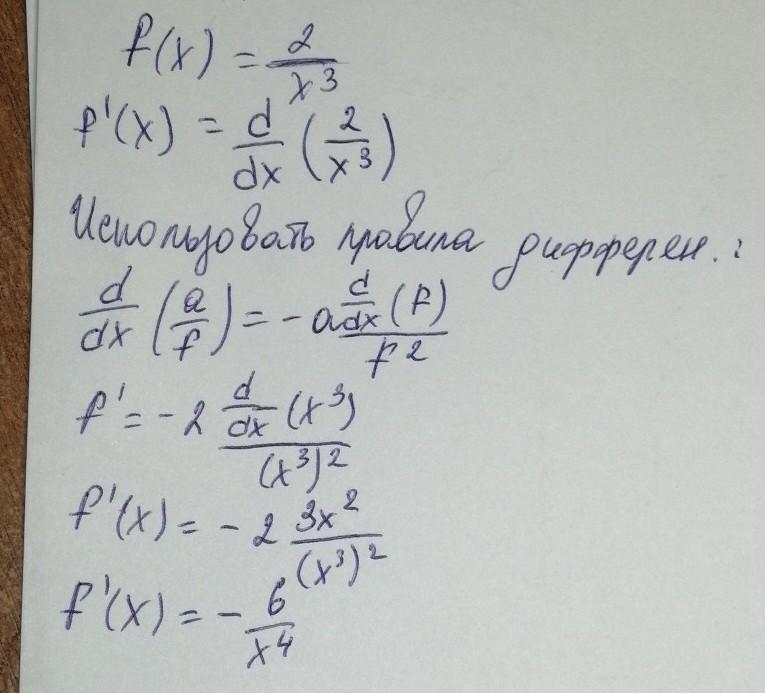 f(x) = 2/x³
f'(x) = d/dx (2/x³)
Использовать правила дифферен. :
d/dx (a/f) = - a d/dx (f)/f²
f' = - 2 d/dx (x³)/(x³)²
f'(x) = - 2 3x²/(x³)²
f'(x) = - 6/x⁴